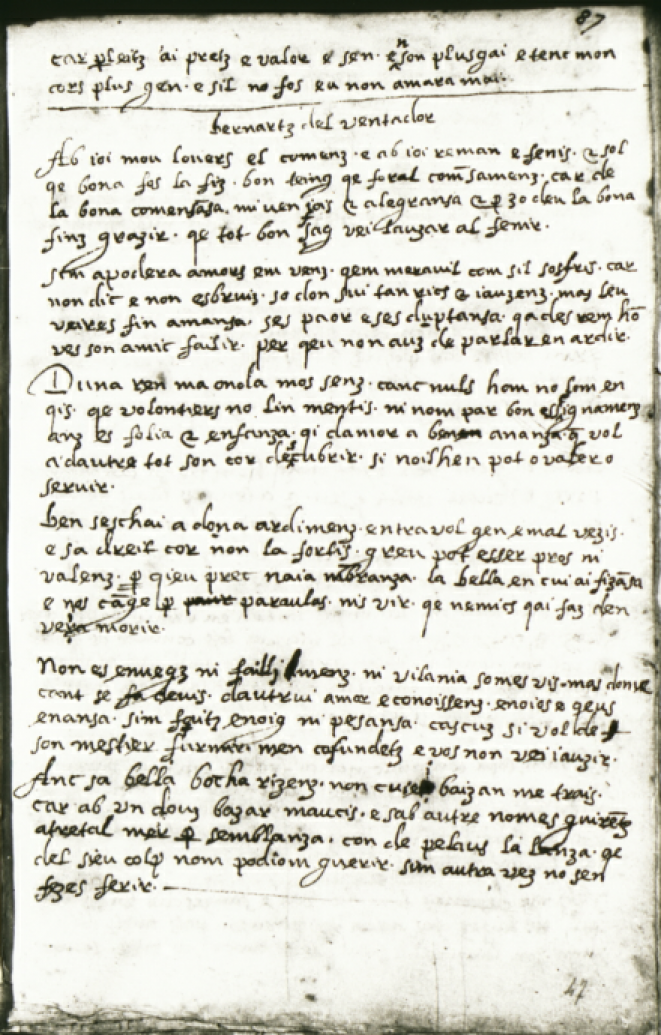 87
car pleitz ai pretz e valor e sen · e son plus gai e tenc mon
cors plus gen · e sil no fos eu non amara mai ·
bernartz del ventador
Ab ioi mou lovers el comenz · e ab ioi reman e fenis · & sol
qe bona fos la fiz · bon teing qe foral comēsamenz · car de
la bona comensāsa · mi ven iais & alegransa & p̱ zo deu la bona
finz grazir · qe tot bon faq vei lauzar al fenir ·
sim apodera amors em venz · qem meravil com sil sosfris · car
non dic e non esbruiz · so don sui tan rics & iauzenz · mas leu
veires fin amansa · ses paor e ses duptansa · qades rem hō
ves son amic failir · per qeu non auz de parlar en ardir ·
Duna ren ma onola mos senz · canc nuls hom no som en
qis · qe volontiers no lin mentis · ni nom par bon essignamenz
anz es folia & enfanza · qi damor a benan anansa · q̄ vol
a dautre tot son cor descubrir · si noilhen pot o valer o
servir ·
ben seschai a dona ardimenz · entravol gen e mal vezis ·
e sa dreit cor non la fortis · greu pot esser pros ni
valenz · p̱ qieu prec naia mēbranza · la bella en cui ai fizāsa
e nos cāge p̱ paraulas · nis vir · qe nemics qai faz den
veia morir ·
Non es enuegz ni failli menz · ni vilania somes vis · mas dome
cant se devis · dautrui amor e conoissenz · enoios e qeus
enansa · sim faitz enoiq ni pesansa · cascuz si vol de
son mestier furmir · men cofundetz e vos non vei iauzir ·
Anc sa bella bocha rizenz · non cuiei baizan me trais ·
car ab un douz bazar maucis · e sab autre nomes guirētz
atretal mer p̱ semblanza · con de pelaus la lanza · qe
del sieu colp nom podiom guerir · sim autra vez no sen
fezes ferir ·
47